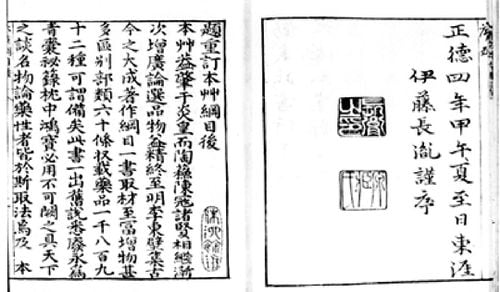 正德四年甲午夏至日東涯
伊藤長胤謹序
題重訂本艸綱目後
本艸益肇于炎皇而陶蘓陳寇諸賢相繼漸
次增廣論選品物益精終至明李東璧集古
今之大成著作綱目一書取材至富增物甚
多區別部類六十條収載藥品一千八百九
十二種可謂備矣此書一出舊説悉廢永為
青囊秘籙枕中鴻寶必用不可闕之真天下
之談名物論藥性者皆於斯取法焉及本